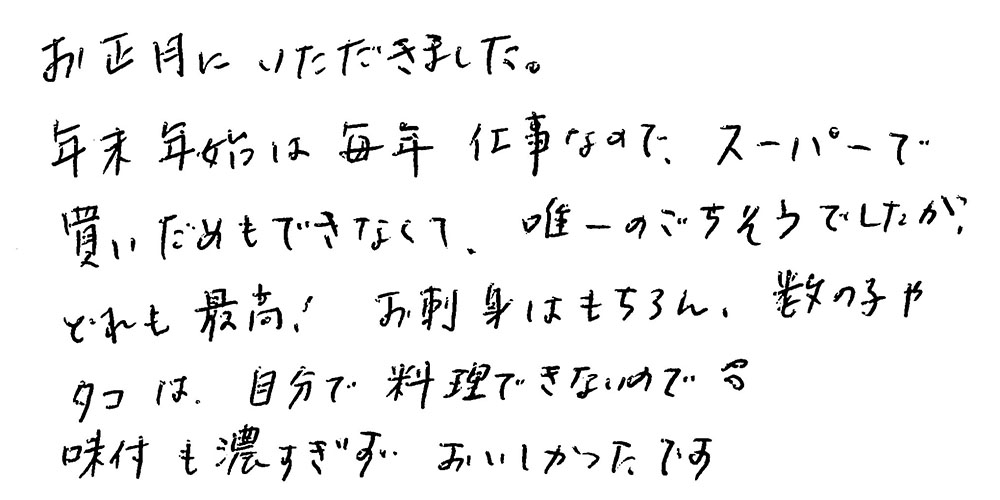 お正月にいただきました。
年末年始は毎年仕事なので、スーパーで
買いだめもできなくて、唯一のごちそうでしたが、
どれも最高! お刺身はもちろん、数の子や
タコは、自分で料理できないので
味付も濃すぎず おいしかったです